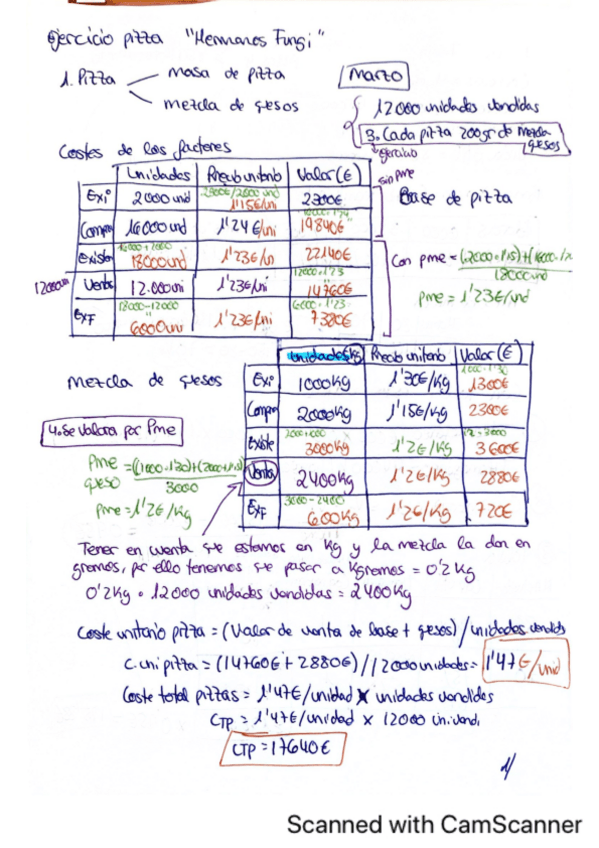 Ejercicio pizza "Hermanos Fungi"
1. Pizza
masa de pizza
mezcla de quesos
Marzo
12000 unidades vendidas
3. Cada pizza 200gr de mezcla quesos
Costes de los factores
Unidades Precio unitario Valor (€)
Exi 2000und 2300€/2000 und 1'15€/uni 2300€
sin pme
Base de pizza
Compra 16000und 1'24€/uni 19840€
Existe 18000und 1'23€/un 22140€
12000un Venta 12.000uni 1'23€/uni 12000×1'23 14760€
ExF 18000-12000 6000uni 1'23€/uni 6000×1'23 7380€
Con pme =
18000und
pme = 1'23€/und
Mezcla de quesos
Unidades kg Precio unitario Valor (€)
Exi 1000kg 1'30€/kg 1300€
Compra 2000kg 1'15€/kg 2300€
4. Se valora por Pme
Existe 3000kg 1'2€/kg 3600€
Pme queso = ((1000·1'30)+(2000·1'15)) / 3000
Venta 2400kg 1'2€/kg 2880€
pme = 1'2€/kg
ExF 3000-2400 600kg 1'2€/kg 720€
Tener en cuenta que estamos en kg y la mezcla la dan en
gramos, por ello tenemos que pasar a kgramos = 0'2kg
0'2kg · 12000 unidades vendidas = 2400kg
Coste unitario pizza = (Valor de venta de base + quesos) / unidades vendids
C. uni pizza = (14760€ + 2880€) / 12000 unidades = 1'47€/und
Coste total pizzas = 1'47€/unidad x unidades vendidas
CTP = 1'47€/unidad x 12000 un. vend.
CTP = 17640€
1/
Scanned with CamScanner